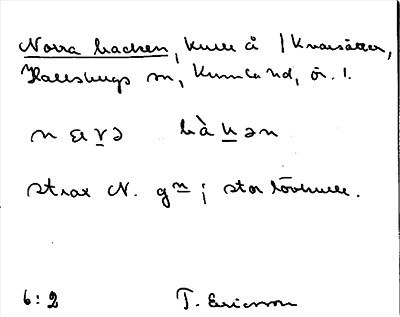 Norra backen, kulle å / Kvarsätter,
Hallsbergs sn, Kumla hd, ör. l.
n a r ə bà k ən
strax N. gn; stor lövkulle.
6:2 T. Ericsson